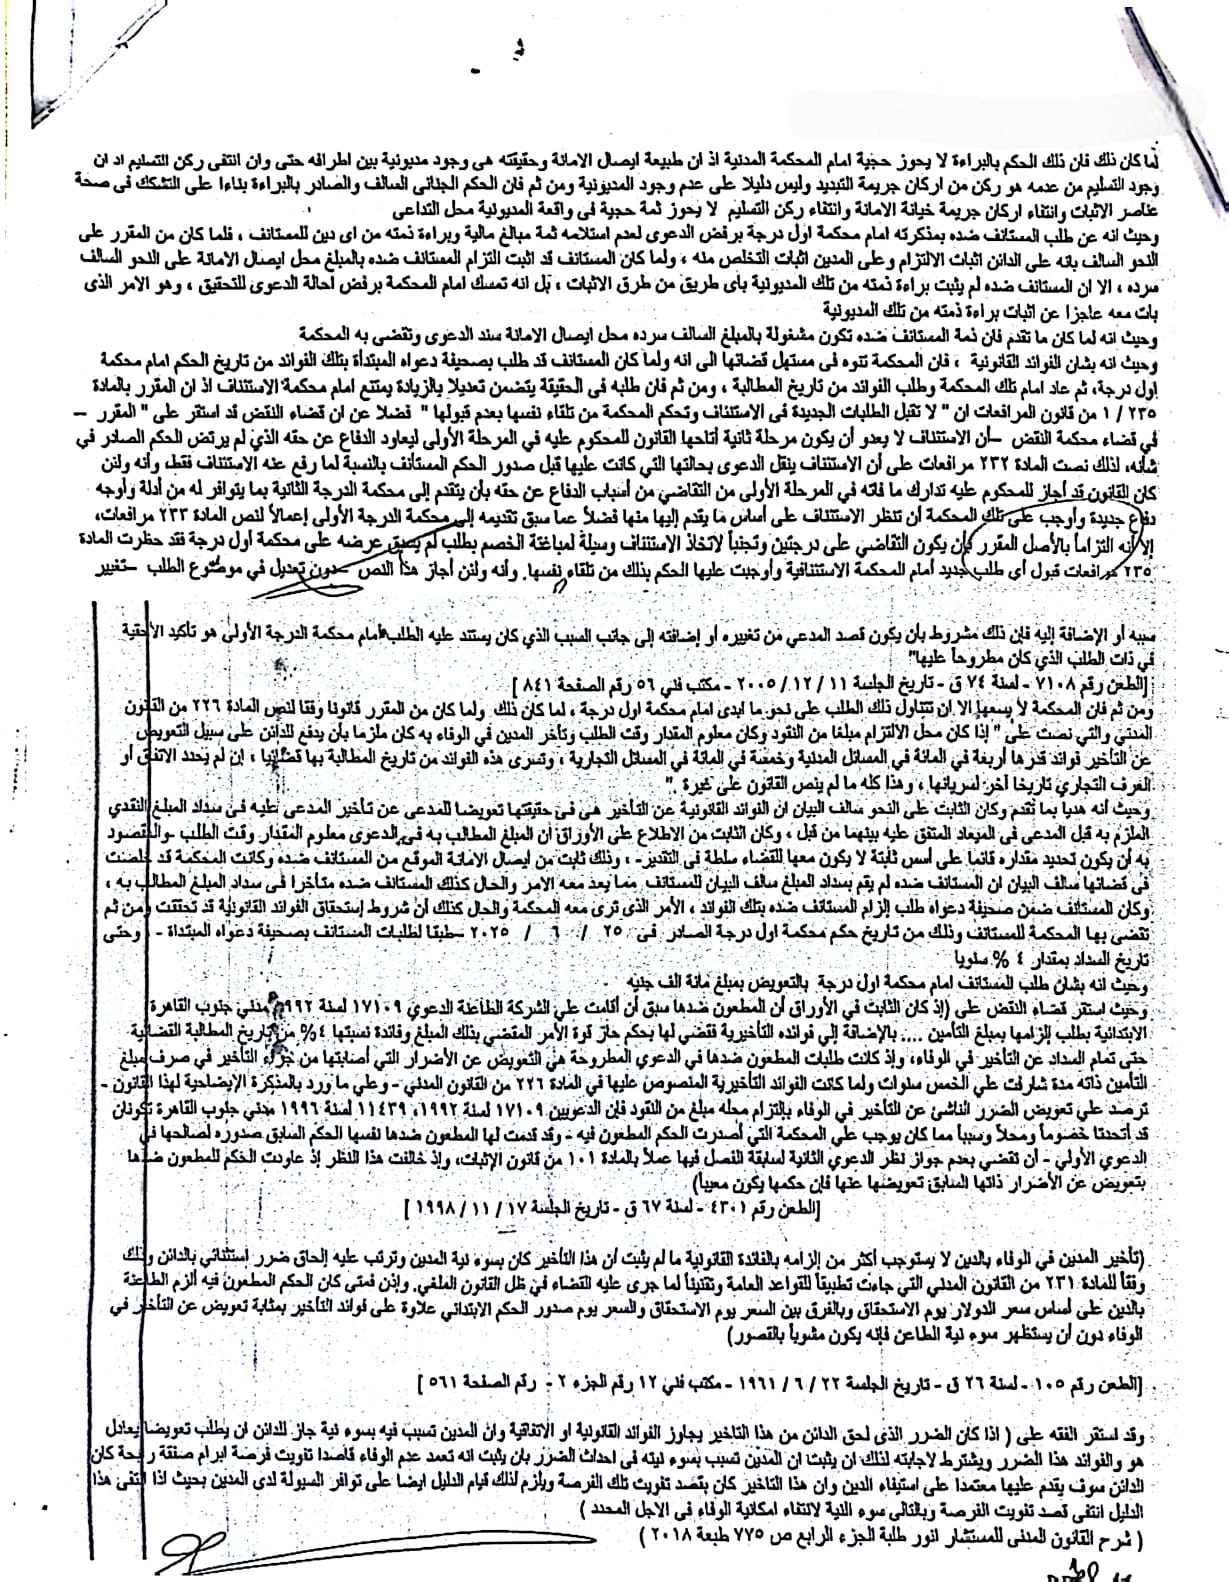 لما كان ذلك فان ذلك الحكم بالبراءة لا يحوز حجية امام المحكمة المدنية اذ ان طبيعة ايصال الامانة وحقيقته هى وجود مديونية بين اطرافه حتى وان انتفى ركن التسليم اذ ان
وجود التسليم من عدمه هو ركن من اركان جريمة التبديد وليس دليلا على عدم وجود المديونية ومن ثم فان الحكم الجنائى السالف والصادر بالبراءة بناءا على التشكك فى صحة
عناصر الاثبات وانتفاء اركان جريمة خيانة الامانة وانتفاء ركن التسليم لا يحوز ثمة حجية فى واقعة المديونية محل التداعى
وحيث انه عن طلب المستانف ضده بمذكرته امام محكمة اول درجة برفض الدعوى لعدم استلامه ثمة مبالغ مالية وبراءة ذمته من اى دين للمستانف ، فلما كان من المقرر على
النحو السالف بانه على الدائن اثبات الالتزام وعلى المدين اثبات التخلص منه ، ولما كان المستانف قد اثبت التزام المستانف ضده بالمبلغ محل ايصال الامانة على النحو السالف
سرده ، الا ان المستانف ضده لم يثبت براءة ذمته من تلك المديونية بأى طريق من طرق الاثبات ، بل انه تمسك امام المحكمة برفض احالة الدعوى للتحقيق ، وهو الامر الذى
بات معه عاجزا عن اثبات براءة ذمته من تلك المديونية
وحيث انه لما كان ما تقدم فان ذمة المستانف ضده تكون مشغولة بالمبلغ السالف سرده محل ايصال الامانة سند الدعوى وتقضى به المحكمة
وحيث انه بشان الفوائد القانونية ، فان المحكمة تنوه فى مستهل قضائها الى انه ولما كان المستانف قد طلب بصحيفة دعواه المبتدأة بتلك الفوائد من تاريخ الحكم امام محكمة
اول درجة، ثم عاد امام تلك المحكمة وطلب الفوائد من تاريخ المطالبة ، ومن ثم فان طلبه فى الحقيقة يتضمن تعديلا بالزيادة يمتنع امام محكمة الاستئناف اذ ان المقرر بالمادة
٢٣٥ / ١ من قانون المرافعات ان " لا تقبل الطلبات الجديدة فى الاستئناف وتحكم المحكمة من تلقاء نفسها بعدم قبولها " فضلا عن ان قضاء النقض قد استقر على " المقرر –
في قضاء محكمة النقض –أن الاستئناف لا يعدو أن يكون مرحلة ثانية أتاحها القانون للمحكوم عليه في المرحلة الأولى ليعاود الدفاع عن حقه الذي لم يرتض الحكم الصادر في
شأنه، لذلك نصت المادة ٢٣٢ مرافعات على أن الاستئناف ينقل الدعوى بحالتها التي كانت عليها قبل صدور الحكم المستأنف بالنسبة لما رفع عنه الاستئناف فقط، وأنه ولئن
كان القانون قد أجاز للمحكوم عليه تدارك ما فاته في المرحلة الأولى من التقاضي من أسباب الدفاع عن حقه بأن يتقدم إلى محكمة الدرجة الثانية بما يتوافر له من أدلة وأوجه
دفاع جديدة وأوجب على تلك المحكمة أن تنظر الاستئناف على أساس ما يقدم إليها منها فضلاً عما سبق تقديمه إلى محكمة الدرجة الأولى إعمالاً لنص المادة ٢٣٣ مرافعات،
إلا أنه التزاماً بالأصل المقرر بأن يكون التقاضي على درجتين وتجنباً لاتخاذ الاستئناف وسيلة لمباغتة الخصم بطلب لم يسبق عرضه على محكمة أول درجة فقد حظرت المادة
٢٣٥ مرافعات قبول أي طلب جديد أمام المحكمة الاستئنافية وأوجبت عليها الحكم بذلك من تلقاء نفسها، وأنه ولئن أجاز هذا النص –دون تعديل في موضوع الطلب –تغيير
سببه أو الإضافة إليه فإن ذلك مشروط بأن يكون قصد المدعي من تغييره أو إضافته إلى جانب السبب الذي كان يستند عليه الطلب أمام محكمة الدرجة الأولى هو تأكيد الأحقية
في ذات الطلب الذي كان مطروحاً عليها"
[الطعن رقم ٧١٠٨ - لسنة ٧٤ ق - تاريخ الجلسة ١١ / ١٢ / ٢٠٠٥ - مكتب فني ٥٦ رقم الصفحة ٨٤١ ]
ومن ثم فان المحكمة لا يسعها الا ان تتناول ذلك الطلب على نحو ما ابدى امام محكمة اول درجة ، لما كان ذلك ولما كان من المقرر قانونا وفقا لنص المادة ٢٢٦ من القانون
المدني والتي نصت على " إذا كان محل الالتزام مبلغا من النقود وكان معلوم المقدار وقت الطلب وتأخر المدين في الوفاء به كان ملزما بأن يدفع للدائن على سبيل التعويض
عن التأخير فوائد قدرها أربعة في المائة في المسائل المدنية وخمسة في المائة في المسائل التجارية ، وتسرى هذه الفوائد من تاريخ المطالبة بها قضائيا ، إن لم يحدد الاتفاق أو
العرف التجاري تاريخا آخر لسريانها ، وهذا كله ما لم ينص القانون على غيرة ."
وحيث أنه هديا بما تقدم وكان الثابت على النحو سالف البيان ان الفوائد القانونية عن التأخير هى فى حقيقتها تعويضا للمدعى عن تأخير المدعى عليه فى سداد المبلغ النقدي
الملزم به قبل المدعى فى الميعاد المتفق عليه بينهما من قبل ، وكان الثابت من الاطلاع على الأوراق أن المبلغ المطالب به في الدعوى معلوم المقدار وقت الطلب -والمقصود
به أن يكون تحديد مقداره قائما على أسس ثابتة لا يكون معها للقضاء سلطة فى التقدير- ، وذلك ثابت من أيصال الامانة الموقع من المستانف ضده وكانت المحكمة قد خلصت
فى قضائها سالف البيان ان المستانف ضده لم يقم بسداد المبلغ سالف البيان للمستانف مما يعد معه الامر والحال كذلك المستانف ضده متأخرا فى سداد المبلغ المطالب به ،
وكان المستانف ضمن صحيفة دعواه طلب إلزام المستانف ضده بتلك الفوائد ، الأمر الذى ترى معه المحكمة والحال كذلك أن شروط إستحقاق الفوائد القانونية قد تحققت ومن ثم
تقضى بها المحكمة للمستانف وذلك من تاريخ حكم محكمة اول درجة الصادر فى ٢٥ / ٦ / ٢٠٢٥ –طبقا لطلبات المستانف بصحيفة دعواه المبتداة - وحتى
تاريخ السداد بمقدار ٤ % سنويا
وحيث انه بشان طلب المستانف امام محكمة اول درجة بالتعويض بمبلغ مائة الف جنيه
وحيث استقر قضاء النقض على (إذ كان الثابت في الأوراق أن المطعون ضدها سبق أن أقامت علي الشركة الطاعنة الدعوي ١٧١٠٩ لسنة ١٩٩٢ مدني جنوب القاهرة
الابتدائية بطلب إلزامها بمبلغ التأمين .... بالإضافة إلي فوائده التأخيرية فقضي لها بحكم حاز قوة الأمر المقضي بذلك المبلغ وفائدة نسبتها ٤% من تاريخ المطالبة القضائية
حتى تمام السداد عن التأخير في الوفاء، وإذ كانت طلبات المطعون ضدها في الدعوي المطروحة هي التعويض عن الأضرار التي أصابتها من جراء التأخير في صرف مبلغ
التأمين ذاته مدة شارفت علي الخمس سنوات ولما كانت الفوائد التأخيرية المنصوص عليها في المادة ٢٢٦ من القانون المدني - وعلي ما ورد بالمذكرة الإيضاحية لهذا القانون -
ترصد علي تعويض الضرر الناشئ عن التأخير في الوفاء بإلتزام محله مبلغ من النقود فإن الدعويين ١٧١٠٩ لسنة ١٩٩٢، ١١٤٣٩ لسنة ١٩٩٦ مدني جنوب القاهرة تكونان
قد أتحدتا خصوماً ومحلاً وسبباً مما كان يوجب علي المحكمة التي أصدرت الحكم المطعون فيه - وقد قدمت لها المطعون ضدها نفسها الحكم السابق صدوره لصالحها في
الدعوي الأولي - أن تقضي بعدم جواز نظر الدعوي الثانية لسابقة الفصل فيها عملاً بالمادة ١٠١ من قانون الإثبات، وإذ خالفت هذا النظر إذ عاودت الحكم للمطعون ضدها
بتعويض عن الأضرار ذاتها السابق تعويضها عنها فإن حكمها يكون معيباً)
[الطعن رقم ٤٣٠١ - لسنة ٦٧ ق - تاريخ الجلسة ١٧ / ١١ / ١٩٩٨ ]
(تأخير المدين في الوفاء بالدين لا يستوجب أكثر من إلزامه بالفائدة القانونية ما لم يثبت أن هذا التأخير كان بسوء نية المدين وترتب عليه إلحاق ضرر استثنائي بالدائن وذلك
وفقاً للمادة ٢٣١ من القانون المدني التي جاءت تطبيقاً للقواعد العامة وتقنيناً لما جرى عليه القضاء في ظل القانون الملغي. وإذن فمتى كان الحكم المطعون فيه ألزم الطاعنة
بالدين على أساس سعر الدولار يوم الاستحقاق وبالفرق بين السعر يوم الاستحقاق والسعر يوم صدور الحكم الابتدائي علاوة على فوائد التأخير بمثابة تعويض عن التأخر في
الوفاء دون أن يستظهر سوء نية الطاعن فإنه يكون مشوباً بالقصور)
[الطعن رقم ١٠٥ - لسنة ٢٦ ق - تاريخ الجلسة ٢٢ / ٦ / ١٩٦١ - مكتب فني ١٢ رقم الجزء ٢ - رقم الصفحة ٥٦١ ]
وقد استقر الفقه على ( اذا كان الضرر الذى لحق الدائن من هذا التاخير يجاوز الفوائد القانونية او الاتفاقية وان المدين تسبب فيه بسوء نية جاز للدائن ان يطلب تعويضا يعادل
هو والفوائد هذا الضرر ويشترط لاجابته لذلك ان يثبت ان المدين تسبب بسوء نيته فى احداث الضرر بان يثبت انه تعمد عدم الوفاء قاصدا تفويت فرصة ابرام صفقة رابحة كان
الدائن سوف يقدم عليها معتمدا على استيفاء الدين وان هذا التاخير كان بقصد تفويت تلك الفرصة ويلزم لذلك قيام الدليل ايضا على توافر السيولة لدى المدين بحيث اذا انتفى هذا
الدليل انتفى قصد تفويت الفرصة وبالتالى سوء النية لانتفاء امكانية الوفاء فى الاجل المحدد )
( شرح القانون المدنى للمستشار انور طلبة الجزء الرابع ص ٧٧٥ طبعة ٢٠١٨ )